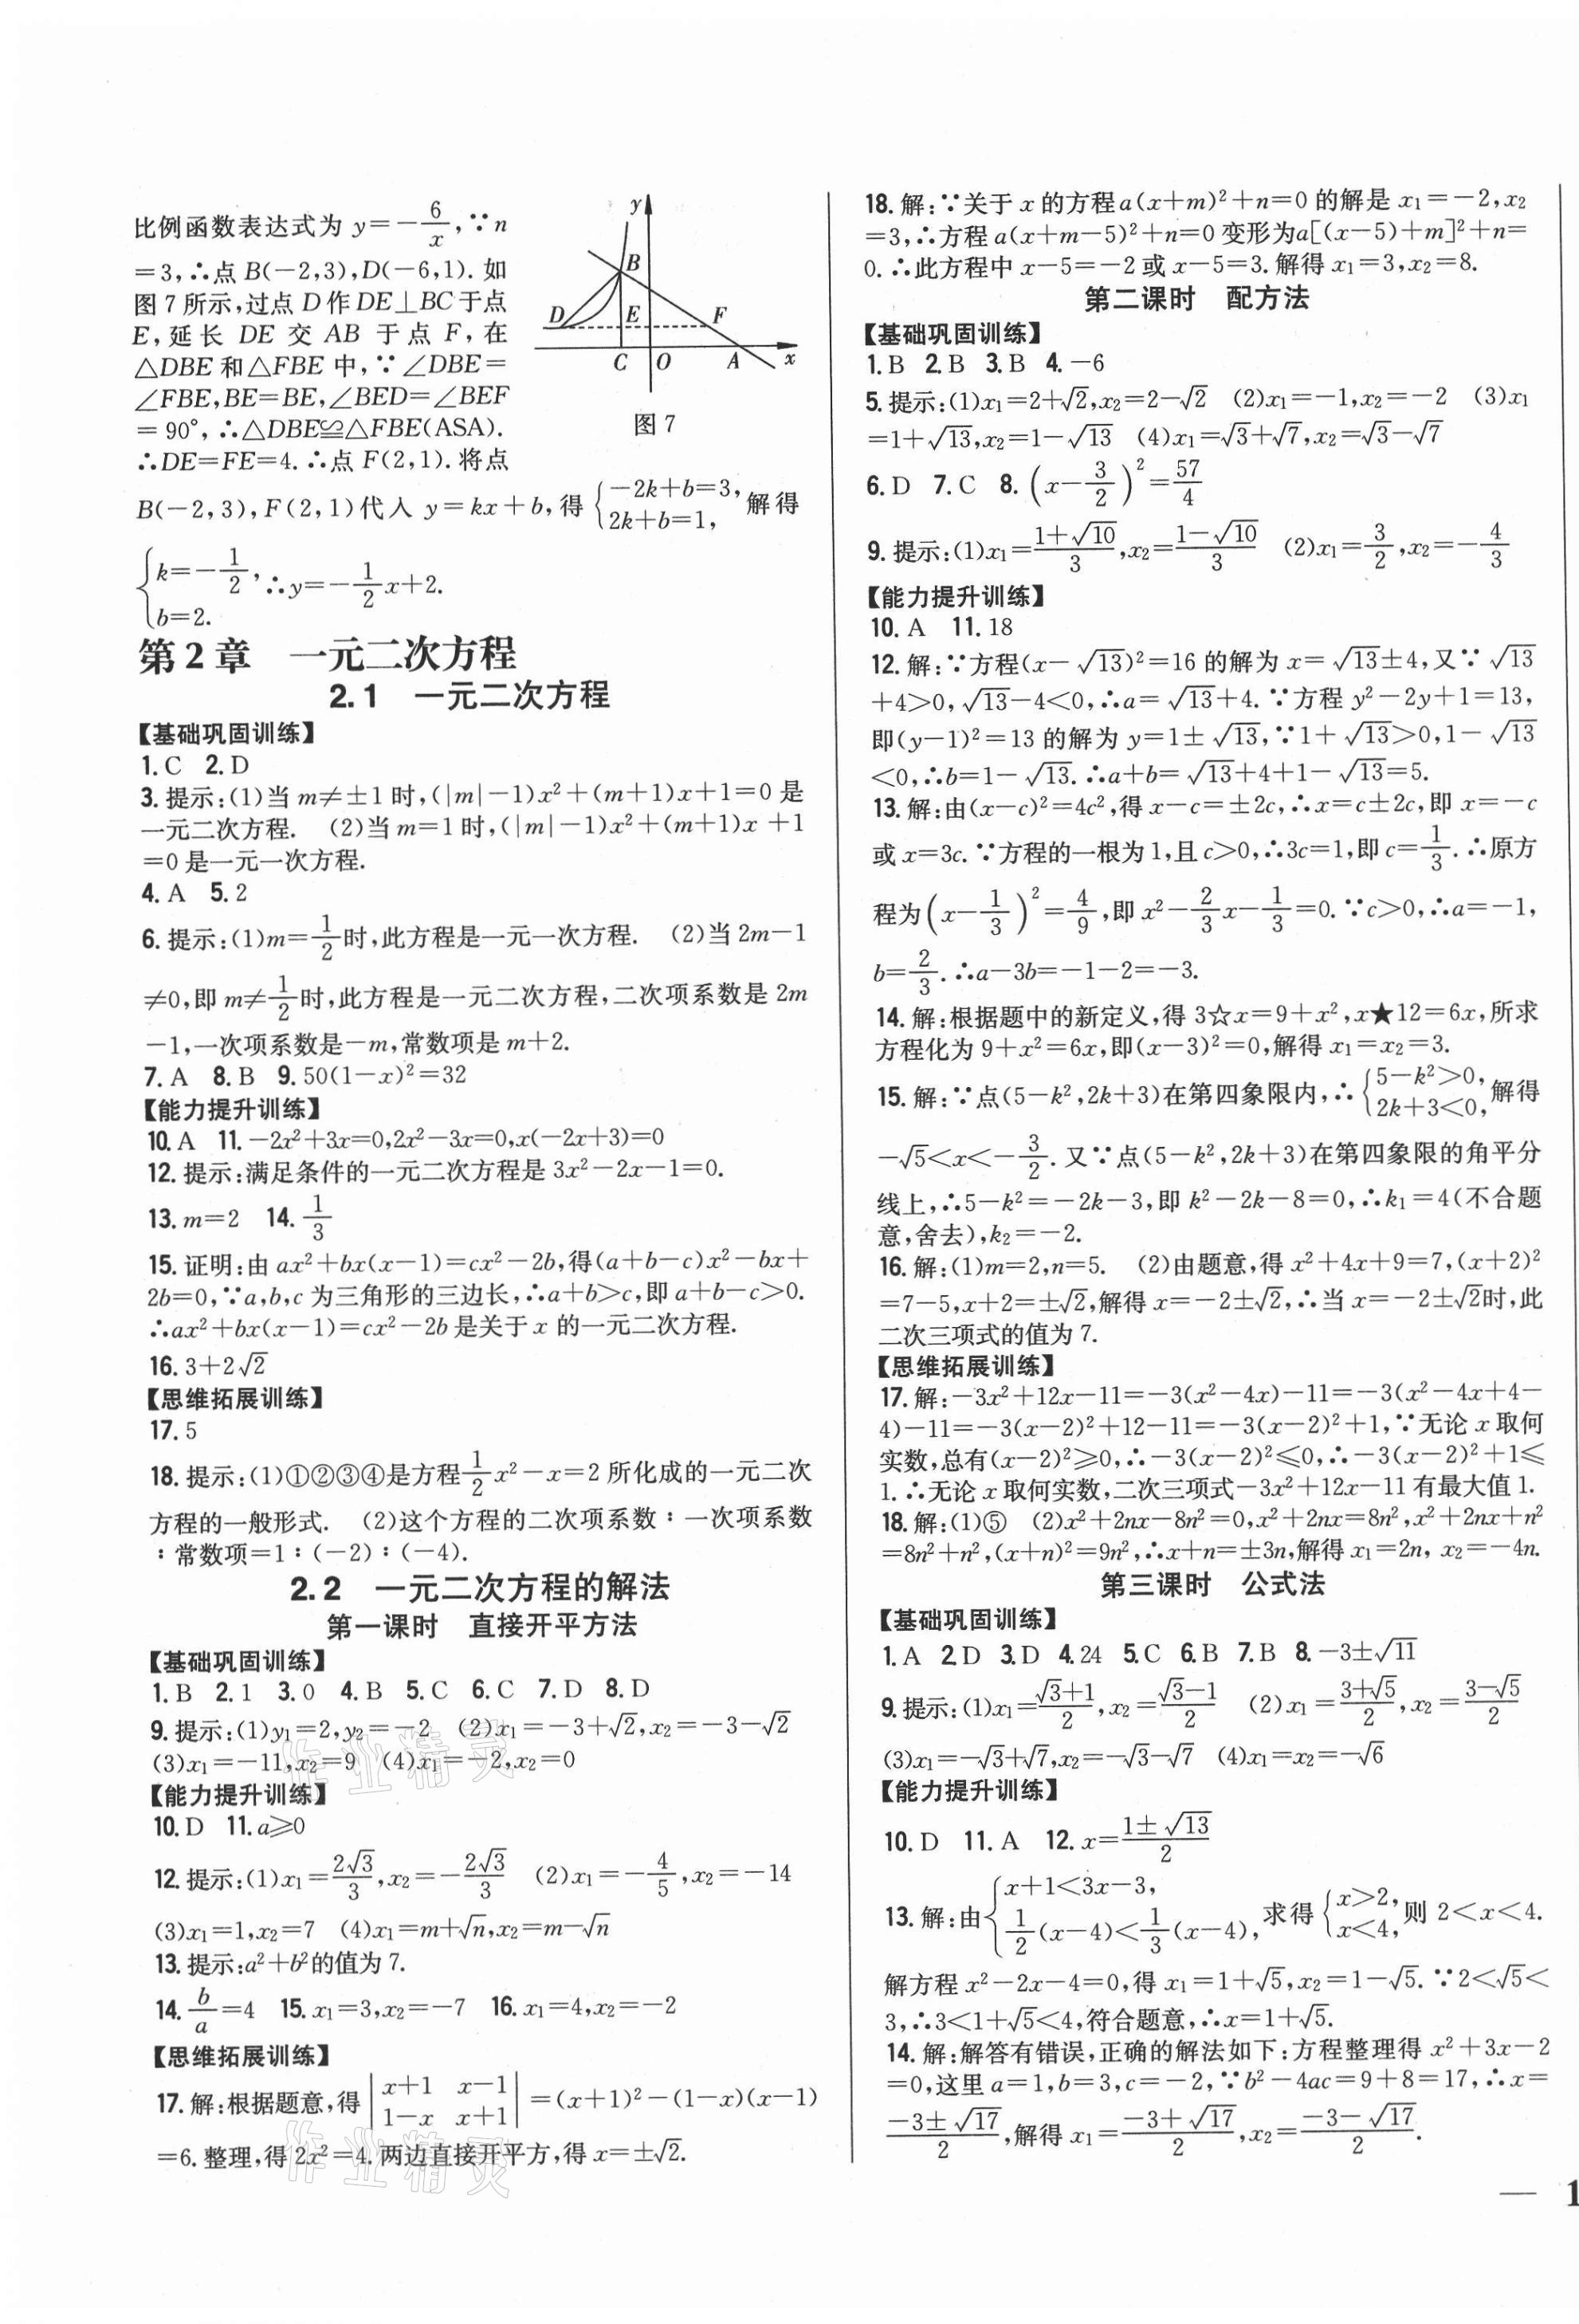 比例函数表达式为 y=−6/x,∵n
=3,∴点 B(−2,3),D(−6,1). 如
图 7 所示,过点 D 作 DE⊥BC 于点
E,延长 DE 交 AB 于点 F,在
△DBE 和△FBE 中,∵∠DBE=
∠FBE,BE=BE,∠BED=∠BEF
=90°,∴△DBE≌△FBE(ASA).
∴DE=FE=4. ∴点 F(2,1). 将点
y
B
D
E
F
C
O
A
x
图 7
B(−2,3),F(2,1)代入 y=kx+b,得 {−2k+b=3, 2k+b=1, 解得
{k=−1/2, b=2. ∴y=−1/2x+2.
第 2 章 一元二次方程
2.1 一元二次方程
【基础巩固训练】
1. C 2. D
3. 提示:(1)当 m≠±1 时,(|m|−1)x²+(m+1)x+1=0 是
一元二次方程. (2)当 m=1 时,(|m|−1)x²+(m+1)x+1
=0 是一元一次方程.
4. A 5. 2
6. 提示:(1)m=1/2时,此方程是一元一次方程. (2)当 2m−1
≠0,即 m≠1/2时,此方程是一元二次方程,二次项系数是 2m
−1,一次项系数是−m,常数项是 m+2.
7. A 8. B 9. 50(1−x)²=32
【能力提升训练】
10. A 11. −2x²+3x=0,2x²−3x=0,x(−2x+3)=0
12. 提示:满足条件的一元二次方程是 3x²−2x−1=0.
13. m=2 14. 1/3
15. 证明:由 ax²+bx(x−1)=cx²−2b,得(a+b−c)x²−bx+
2b=0,∵a,b,c 为三角形的三边长,∴a+b>c,即 a+b−c>0.
∴ax²+bx(x−1)=cx²−2b 是关于 x 的一元二次方程.
16. 3+2√2
【思维拓展训练】
17. 5
18. 提示:(1)①②③④是方程1/2x²−x=2 所化成的一元二次
方程的一般形式. (2)这个方程的二次项系数∶一次项系数
∶常数项=1∶(−2)∶(−4).
2.2 一元二次方程的解法
第一课时 直接开平方法
【基础巩固训练】
1. B 2. 1 3. 0 4. B 5. C 6. C 7. D 8. D
9. 提示:(1)y₁=2,y₂=−2 (2)x₁=−3+√2,x₂=−3−√2
(3)x₁=−11,x₂=9 (4)x₁=−2,x₂=0
【能力提升训练】
10. D 11. a≥0
12. 提示:(1)x₁=2√3/3,x₂=−2√3/3 (2)x₁=−4/5,x₂=−14
(3)x₁=1,x₂=7 (4)x₁=m+√n,x₂=m−√n
13. 提示:a²+b²的值为 7.
14. b/a=4 15. x₁=3,x₂=−7 16. x₁=4,x₂=−2
【思维拓展训练】
17. 解:根据题意,得 |x+1 x−1 1−x x+1| =(x+1)²−(1−x)(x−1)
=6. 整理,得 2x²=4. 两边直接开平方,得 x=±√2.
18. 解:∵关于 x 的方程 a(x+m)²+n=0 的解是 x₁=−2,x₂
=3,∴方程 a(x+m−5)²+n=0 变形为a[(x−5)+m]²+n=
0. ∴此方程中 x−5=−2 或 x−5=3. 解得 x₁=3,x₂=8.
第二课时 配方法
【基础巩固训练】
1. B 2. B 3. B 4. −6
5. 提示:(1)x₁=2+√2,x₂=2−√2 (2)x₁=−1,x₂=−2 (3)x₁
=1+√13,x₂=1−√13 (4)x₁=√3+√7,x₂=√3−√7
6. D 7. C 8. (x−3/2)²=57/4
9. 提示:(1)x₁=(1+√10)/3,x₂=(1−√10)/3 (2)x₁=3/2,x₂=−4/3
【能力提升训练】
10. A 11. 18
12. 解:∵方程(x−√13)²=16 的解为 x=√13±4,又∵√13
+4>0,√13−4<0,∴a=√13+4. ∵方程 y²−2y+1=13,
即(y−1)²=13 的解为 y=1±√13,∵1+√13>0,1−√13
<0,∴b=1−√13. ∴a+b=√13+4+1−√13=5.
13. 解:由(x−c)²=4c²,得 x−c=±2c,∴x=c±2c,即 x=−c
或 x=3c. ∵方程的一根为 1,且 c>0,∴3c=1,即 c=1/3. ∴原方
程为(x−1/3)²=4/9,即 x²−2/3x−1/3=0. ∵c>0,∴a=−1,
b=2/3. ∴a−3b=−1−2=−3.
14. 解:根据题中的新定义,得 3☆x=9+x²,x★12=6x,所求
方程化为 9+x²=6x,即(x−3)²=0,解得 x₁=x₂=3.
15. 解:∵点(5−k²,2k+3)在第四象限内,∴{5−k²>0, 2k+3<0, 解得
−√5<x<−3/2. 又∵点(5−k²,2k+3)在第四象限的角平分
线上,∴5−k²=−2k−3,即 k²−2k−8=0,∴k₁=4(不合题
意,舍去),k₂=−2.
16. 解:(1)m=2,n=5. (2)由题意,得 x²+4x+9=7,(x+2)²
=7−5,x+2=±√2,解得 x=−2±√2,∴当 x=−2±√2时,此
二次三项式的值为 7.
【思维拓展训练】
17. 解:−3x²+12x−11=−3(x²−4x)−11=−3(x²−4x+4−
4)−11=−3(x−2)²+12−11=−3(x−2)²+1,∵无论 x 取何
实数,总有(x−2)²≥0,∴−3(x−2)²≤0,∴−3(x−2)²+1≤
1. ∴无论 x 取何实数,二次三项式−3x²+12x−11 有最大值 1.
18. 解:(1)⑤ (2)x²+2nx−8n²=0,x²+2nx=8n²,x²+2nx+n²
=8n²+n²,(x+n)²=9n²,∴x+n=±3n,解得 x₁=2n, x₂=−4n.
第三课时 公式法
【基础巩固训练】
1. A 2. D 3. D 4. 24 5. C 6. B 7. B 8. −3±√11
9. 提示:(1)x₁=(√3+1)/2,x₂=(√3−1)/2 (2)x₁=(3+√5)/2,x₂=(3−√5)/2
(3)x₁=−√3+√7,x₂=−√3−√7 (4)x₁=x₂=−√6
【能力提升训练】
10. D 11. A 12. x=(1±√13)/2
13. 解:由{x+1<3x−3, 1/2(x−4)<1/3(x−4), 求得{x>2, x<4, 则 2<x<4.
解方程 x²−2x−4=0,得 x₁=1+√5,x₂=1−√5. ∵2<√5<
3,∴3<1+√5<4,符合题意,∴x=1+√5.
14. 解:解答有错误,正确的解法如下:方程整理得 x²+3x−2
=0,这里 a=1,b=3,c=−2,∵b²−4ac=9+8=17,∴x=
(−3±√17)/2,解得 x₁=(−3+√17)/2,x₂=(−3−√17)/2.
— 1
作业精灵
作业精灵